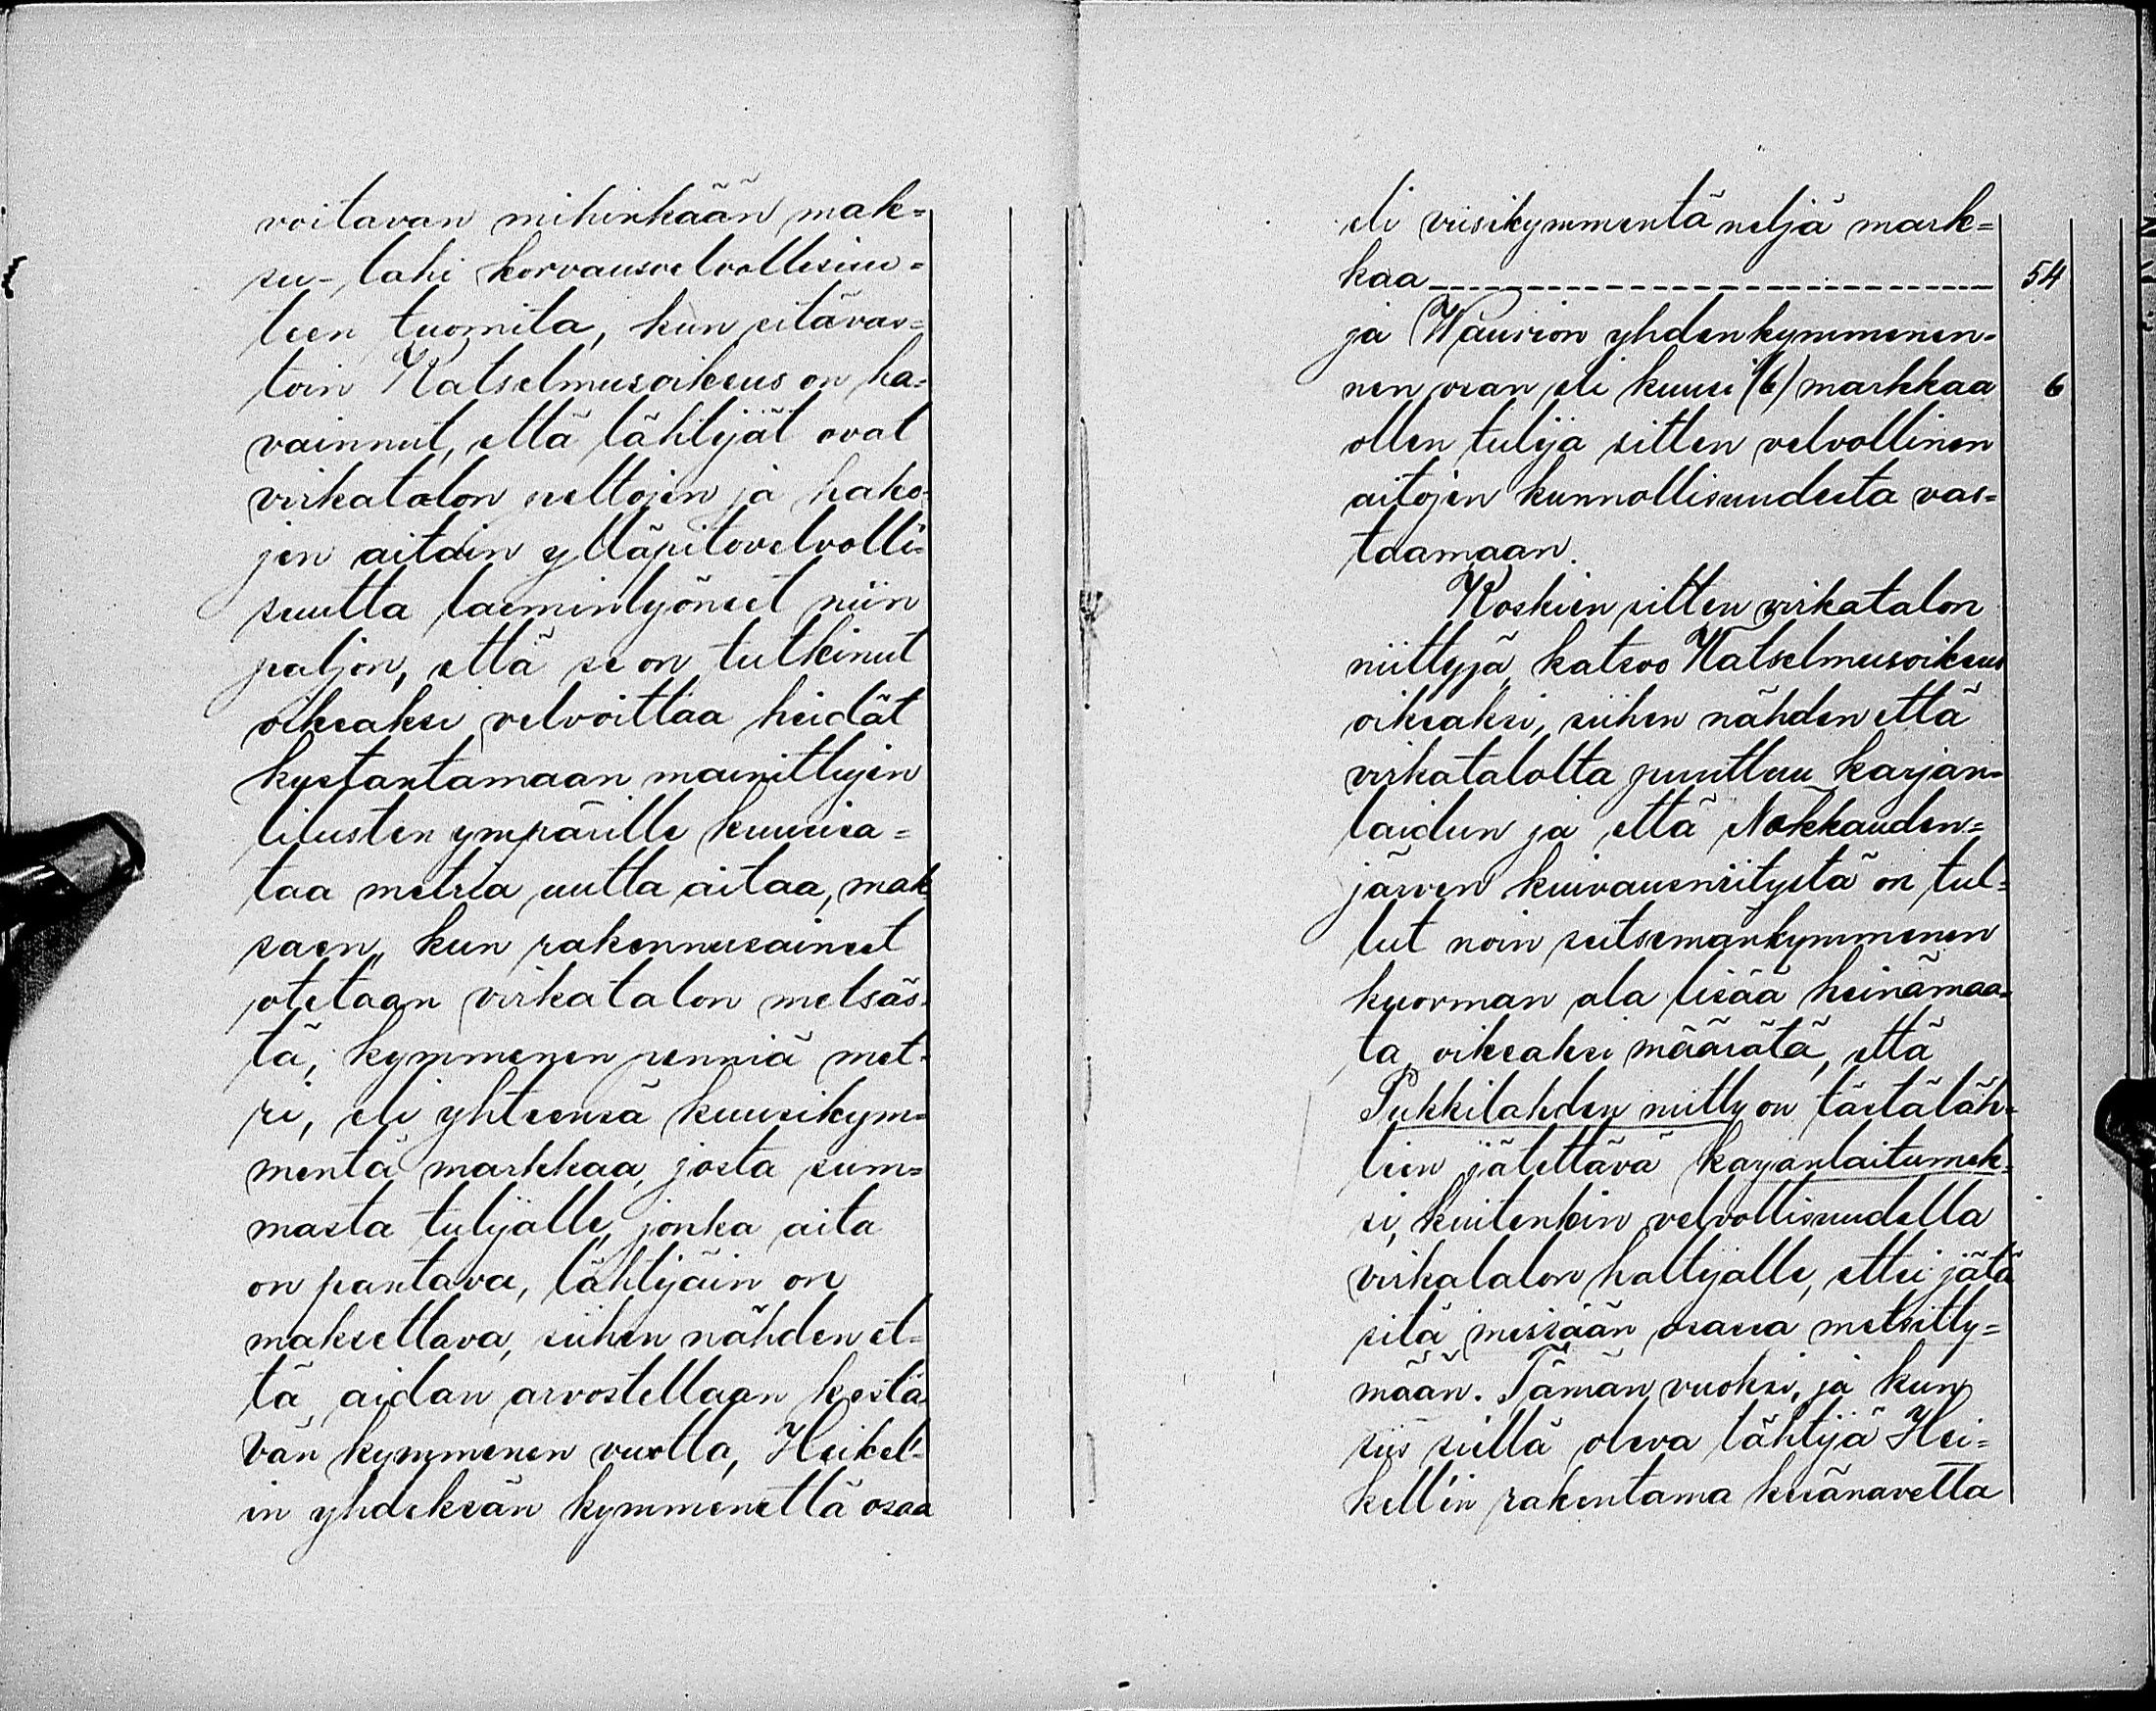 voitavan mihinkään mak=
su-, tahi korvausvelvollisuu=
teen tuomita, kun sitävas=
toin Katselmusoikeus on ha=
vainnut, että lähtijät ovat
virkatalon peltojen ja hako=
jen aitain ylläpitovelvolli=
suutta laiminlyöneet niin
paljon, että se on tutkinut
oikeaksi velvoittaa heidät
kustantamaan mainittujen
tilusten ympärille kuusisa=
taa metria uutta aitaa, mak=
saen, kun rakennusaineet
otetaan virkatalon metsäs=
tä, kymmenen penniä met=
ri, eli yhteensä kuusikym=
mentä markkaa, josta sum=
masta tulijalle, jonka aita
on pantava, lähtijäin on
maksettava, siihen nähden et=
tä aidan arvostellaan kestä=
vän kymmenen vuotta, Heikel'=
in yhdeksän kymmenettä osaa
eli viisikymmentä neljä mark=
kaa 54
ja Waurion yhdenkymmenen=
nen osan eli kuusi (6) markkaa 6
ollen tulija sitten velvollinen
aitojen kunnollisuudesta vas=
taamaan.
Koskien sitten virkatalon
niittyjä, katsoo Katselmusoikeus
oikeaksi, siihen nähden että
virkatalolta puuttuu karjan=
laidun ja että Nokkauden=
järven kuivausniitystä on tul=
lut noin seitsemänkymmenen
kuorman ala lisää heinämaa=
ta, oikeaksi määrätä, että
Pukkilahden niitty on tästäläh=
tien jätettävä karjanlaitumek=
si, kuitenkin velvollisuudella
virkatalon haltijalle, ettei jätä
sitä missään osassa metsitty=
mään. Tämän vuoksi, ja kun
siis siellä oleva lähtijä Hei=
kell'in rakentama kesänavetta